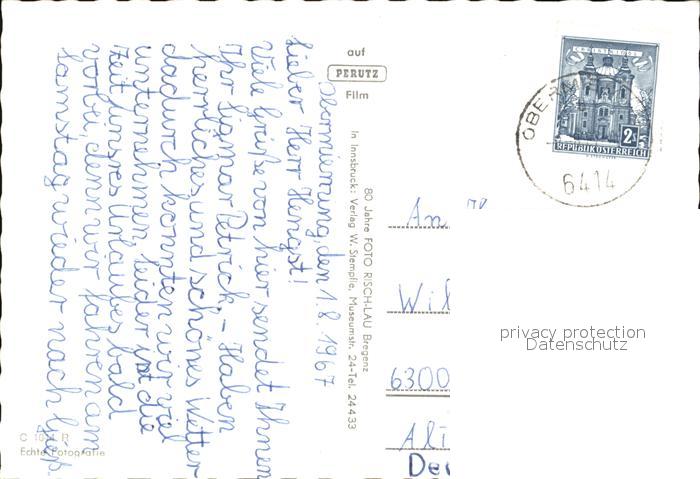 Obermieming, den 1.8.1967
Lieber Herr Hengst!
Viele Grüße von hier sendet Ihnen
Ihr Sigmar Petrick, – Haben
herrliches und schönes Wetter
dadurch konnten wir viel
unternehmen, leider ist die
Zeit unsres Urlaubes bald
vorbei, denn wir fahren am
Samstag wieder nach
auf
PERUTZ
Film
80 Jahre FOTO RISCH-LAU Bregenz
In Innsbruck: Verlag W. Stempfle, Museumstr. 24-Tel. 24433
C
R
Echte Fotografie
CHRISTKINDL
2
REPUBLIK ÖSTERREICH
OBERM
6414
An
Wil
6300
privacy protection
Datenschutz